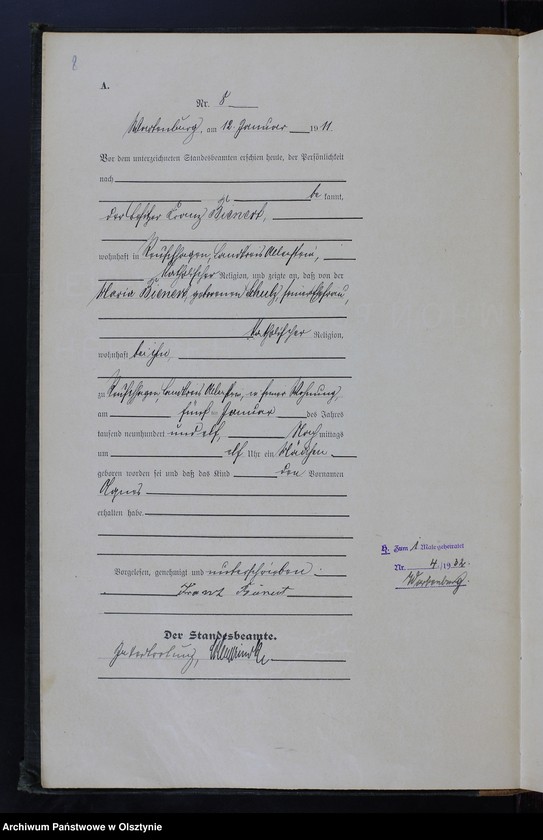 8
A.
Nr. 8
Wartenburg, am 12. Januar 1911
Vor dem unterzeichneten Standesbeamten erschien heute, der Persönlichkeit
nach
be kannt,
der Besitzer Franz Bienert,
wohnhaft in Landkreis Allenstein,
katholischer Religion, und zeigte an, daß von der
Maria Bienert, geborenen seiner Ehefrau,
katholischer Religion,
wohnhaft bei ihm,
zu Landkreis Allenstein, in seiner Wohnung,
am fünf ten Januar des Jahres
tausend neunhundert und elf, Nach mittags
um elf Uhr ein Mädchen
geboren worden sei und daß das Kind den Vornamen
Agnes
erhalten habe.
Vorgelesen, genehmigt und unterschrieben
Franz
Der Standesbeamte.
In Vertretung,
H. Zum 1 Male geheiratet
Nr. 4/19
Wartenburg.
Archiwum Państwowe w Olsztynie